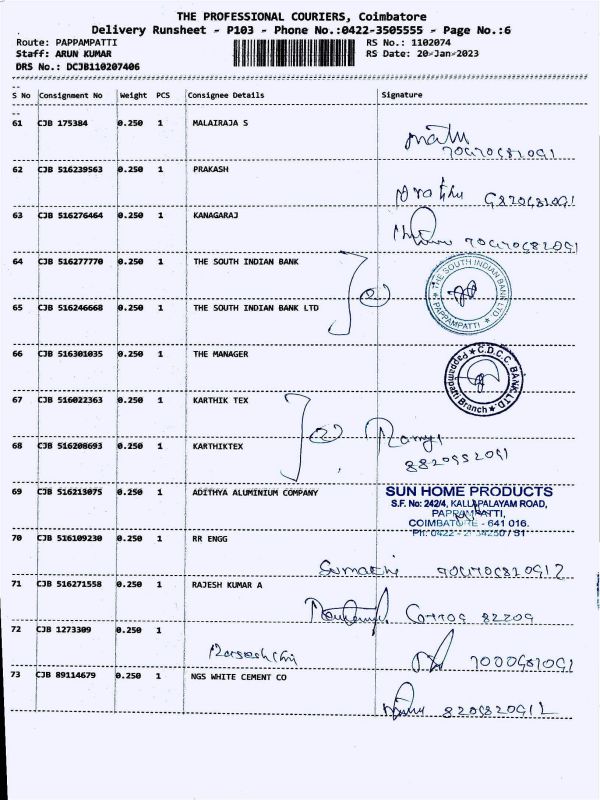 THE PROFESSIONAL COURIERS, Coimbatore
Delivery Runsheet - P103 - Phone No.:0422-3505555 - Page No.:6
Route: PAPPAMPATTI RS No.: 1102074
Staff: ARUN KUMAR RS Date: 20-Jan-2023
DRS No.: DCJB110207406
S No Consignment No Weight PCS Consignee Details Signature
61 CJB 175384 0.250 1 MALAIRAJA S
62 CJB 516239563 0.250 1 PRAKASH
63 CJB 516276464 0.250 1 KANAGARAJ
64 CJB 516277770 0.250 1 THE SOUTH INDIAN BANK
THE SOUTH INDIAN BANK LTD. ★ PAPPAMPATTI ★
65 CJB 516246668 0.250 1 THE SOUTH INDIAN BANK LTD
66 CJB 516301035 0.250 1 THE MANAGER
★ C.D.C.C. BANK LTD. ★ Pappampatti Branch
67 CJB 516022363 0.250 1 KARTHIK TEX
68 CJB 516208693 0.250 1 KARTHIKTEX
69 CJB 516213075 0.250 1 ADITHYA ALUMINIUM COMPANY
SUN HOME PRODUCTS
S.F. No: 242/4, KALLAPALAYAM ROAD,
PAPPAMPATTI,
COIMBATORE - 641 016.
70 CJB 516109230 0.250 1 RR ENGG
71 CJB 516271558 0.250 1 RAJESH KUMAR A
72 CJB 1273309 0.250 1
73 CJB 89114679 0.250 1 NGS WHITE CEMENT CO